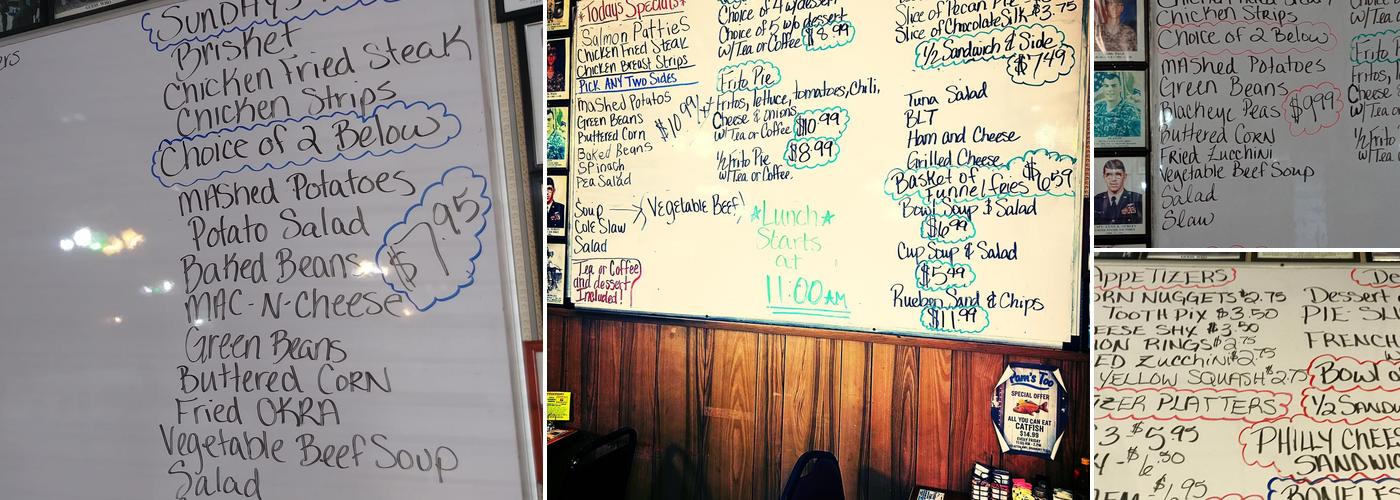 ers
SUNDAYS
Brisket
Chicken Fried Steak
Chicken Strips
Choice of 2 Below
MASHED POTATOES
Potato Salad
Baked Beans
MAC-N-CHEESE
$7.95
Green Beans
Buttered CORN
Fried OKRA
Vegetable Beef Soup
Salad
*Todays Specials*
Salmon Patties
Chicken Fried Steak
Chicken Breast Strips
PICK ANY TWO SIDES
MASHED POTATOS
Green Beans
Buttered Corn
Baked Beans
SPINACH
Pea Salad
$10.99
Soup
Cole Slaw
Salad
Vegetable Beef!
Tea or Coffee
and dessert
Included!
Choice of 4 w/dessert
Choice of 5 w/o dessert
w/Tea or Coffee $8.99
Frito Pie
Fritos, lettuce, tomatoes, Chili,
Cheese & onions
w/Tea or Coffee $10.99
$8.99
1/2 Frito Pie
w/Tea or Coffee
*Lunch*
Starts
at
11:00 AM
Slice of Pecan Pie
Slice of Chocolate Silk $3.75
1/2 Sandwich & Side
$7.49
Tuna Salad
BLT
Ham and Cheese
Grilled Cheese
Basket of Funnel fries $6.59
Bowl Soup & Salad
$6.99
Cup Soup & Salad
$5.49
Rueben Sand & Chips
$11.99
Pam's Too
SPECIAL OFFER
ALL YOU CAN EAT
CATFISH
$14.99
Chicken Strips
Choice of 2 Below
MASHED POTATOES
Green Beans
Blackeye Peas $9.99
Buttered CORN
Fried Zucchini
Vegetable Beef Soup
Salad
Slaw
Frito
Fritos, l
Cheese
w/Tea
1/2 Frito
w/Tea
APPETIZERS
ORN NUGGETS $2.75
TOOTH PIX $3.50
EESE STIX $3.50
ION RINGS $2.75
ED Zucchini $2.75
YELLOW SQUASH $2.75
IZER PLATTERS
3 $5.95
4 - $6.50
$1.95
De
Dessert
PIE SLI
FRENCH
Bowl o
1/2 SAND
PHILLY CHEES
SANDWIC
BONELES